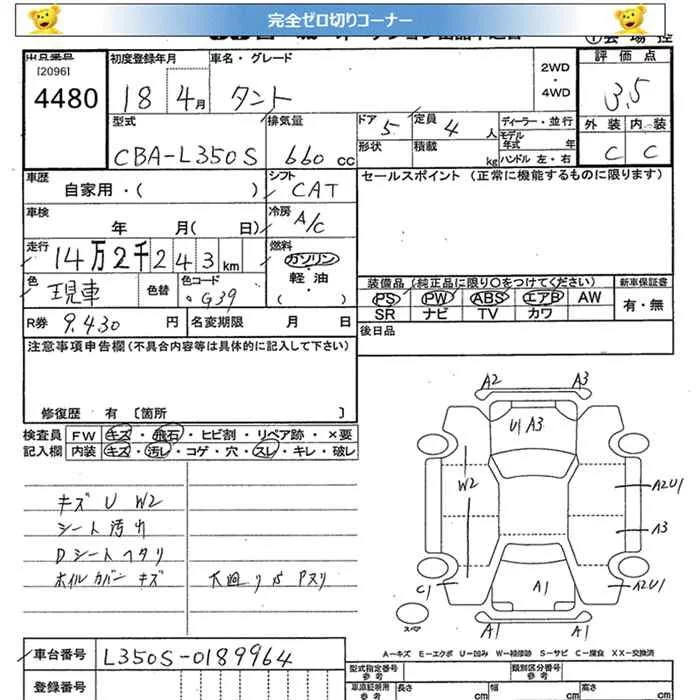 完全ゼロ切りコーナー
出品番号 初度登録年月 車名・グレード 2WD・4WD 評価点
[2096]
4480 18 4月 タント 3.5
型式 排気量 ドア 5 定員 4 人 ディーラー・並行 外装 内装
CBA-L350S 660 cc 形状 積載 kg モデル年式 年 C C
ハンドル 左・右
車歴 シフト セールスポイント (正常に機能するものに限ります)
自家用・( ) CAT
車検 冷房
年 月( 日) A/C
走行 燃料
14万2千243km ガソリン
軽・油
色 色替 色コード ( ) 装備品 (純正品に限り○をつけてください) 新車保証書
現車 G39 PS PW ABS エアB AW 有・無
SR ナビ TV カワ
R券 9.430 円 名変期限 月 日 後日品
注意事項申告欄(不具合内容等は具体的に記入して下さい)
修復歴 有 〔箇所 〕
検査員 FW キズ・飛石・ヒビ割・リペア跡・×要
記入欄 内装 キズ・汚レ・コゲ・穴・スレ・キレ・破レ
キズ U W2
シート汚れ
Dシートヘタリ
ホイルカバーキズ 下廻り
A2 A3
U1 A3
W2 A2U1
A3
C1 A1 A2U1
スペア A1 A1
A-キズ E-エクボ U-凹み W-補修跡 S-サビ C-腐食 XX-交換済
車台番号 L350S-0189964
登録番号
型式指定番号 参考 類別区分番号 参考
車庫証明用 参考 長さ cm 幅 cm 高さ cm